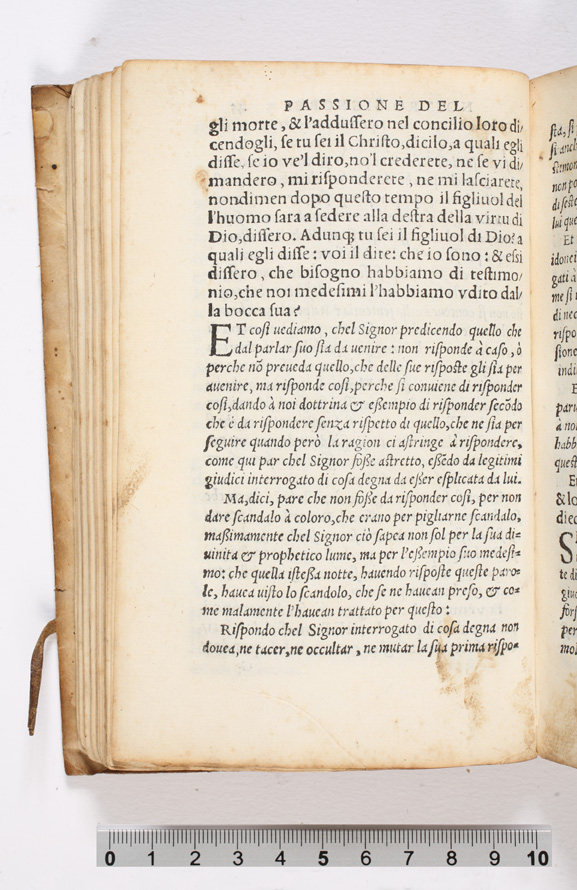 PASSIONE DEL
gli morte, & l'addussero nel concilio loro di/
cendogli, se tu sei il Christo, dicilo, a quali egli
disse, se io ve'l diro, no'l crederete, ne se vi di/
mandero, mi risponderete, ne mi lasciarete,
nondimen dopo questo tempo il figliuol del
l'huomo sara a sedere alla destra della virtu di
Dio, dissero. Adunq; tu sei il figliuol di Dio? a
quali egli disse : voi il dite: che io sono : & essi
dissero, che bisogno habbiamo di testimo/
nio, che noi medesimi l'habbiamo vdito dal/
la bocca sua?
ET cosi uediamo, chel Signor predicendo quello che
dal parlar suo sia da uenire : non risponde à caso, ò
perche nõ preueda quello, che delle sue risposte gli sia per
auenire, ma risponde cosi, perche si conuiene di risponder
cosi, dando à noi dottrina & essempio di risponder secõdo
che é da rispondere senza rispetto di quello, che ne sia per
seguire quando però la ragion ci astringe à rispondere,
come qui par chel Signor fosse astretto, essẽdo da legitimi
giudici interrogato di cosa degna da esser esplicata da lui.
Ma, dici, pare che non fosse da risponder cosi, per non
dare scandalo à coloro, che erano per pigliarne scandalo,
massimamente chel Signor ciò sapea non sol per la sua di=
uinita & prophetico lume, ma per l'essempio suo medesi=
mo: che quella istessa notte, hauendo risposte queste paro=
le, hauea uisto lo scandolo, che se ne hauean preso, & co=
me malamente l'hauean trattato per questo :
Rispondo chel Signor interrogato di cosa degna non
douea, ne tacer, ne occultar, ne mutar la sua prima rispo=
0 1 2 3 4 5 6 7 8 9 10